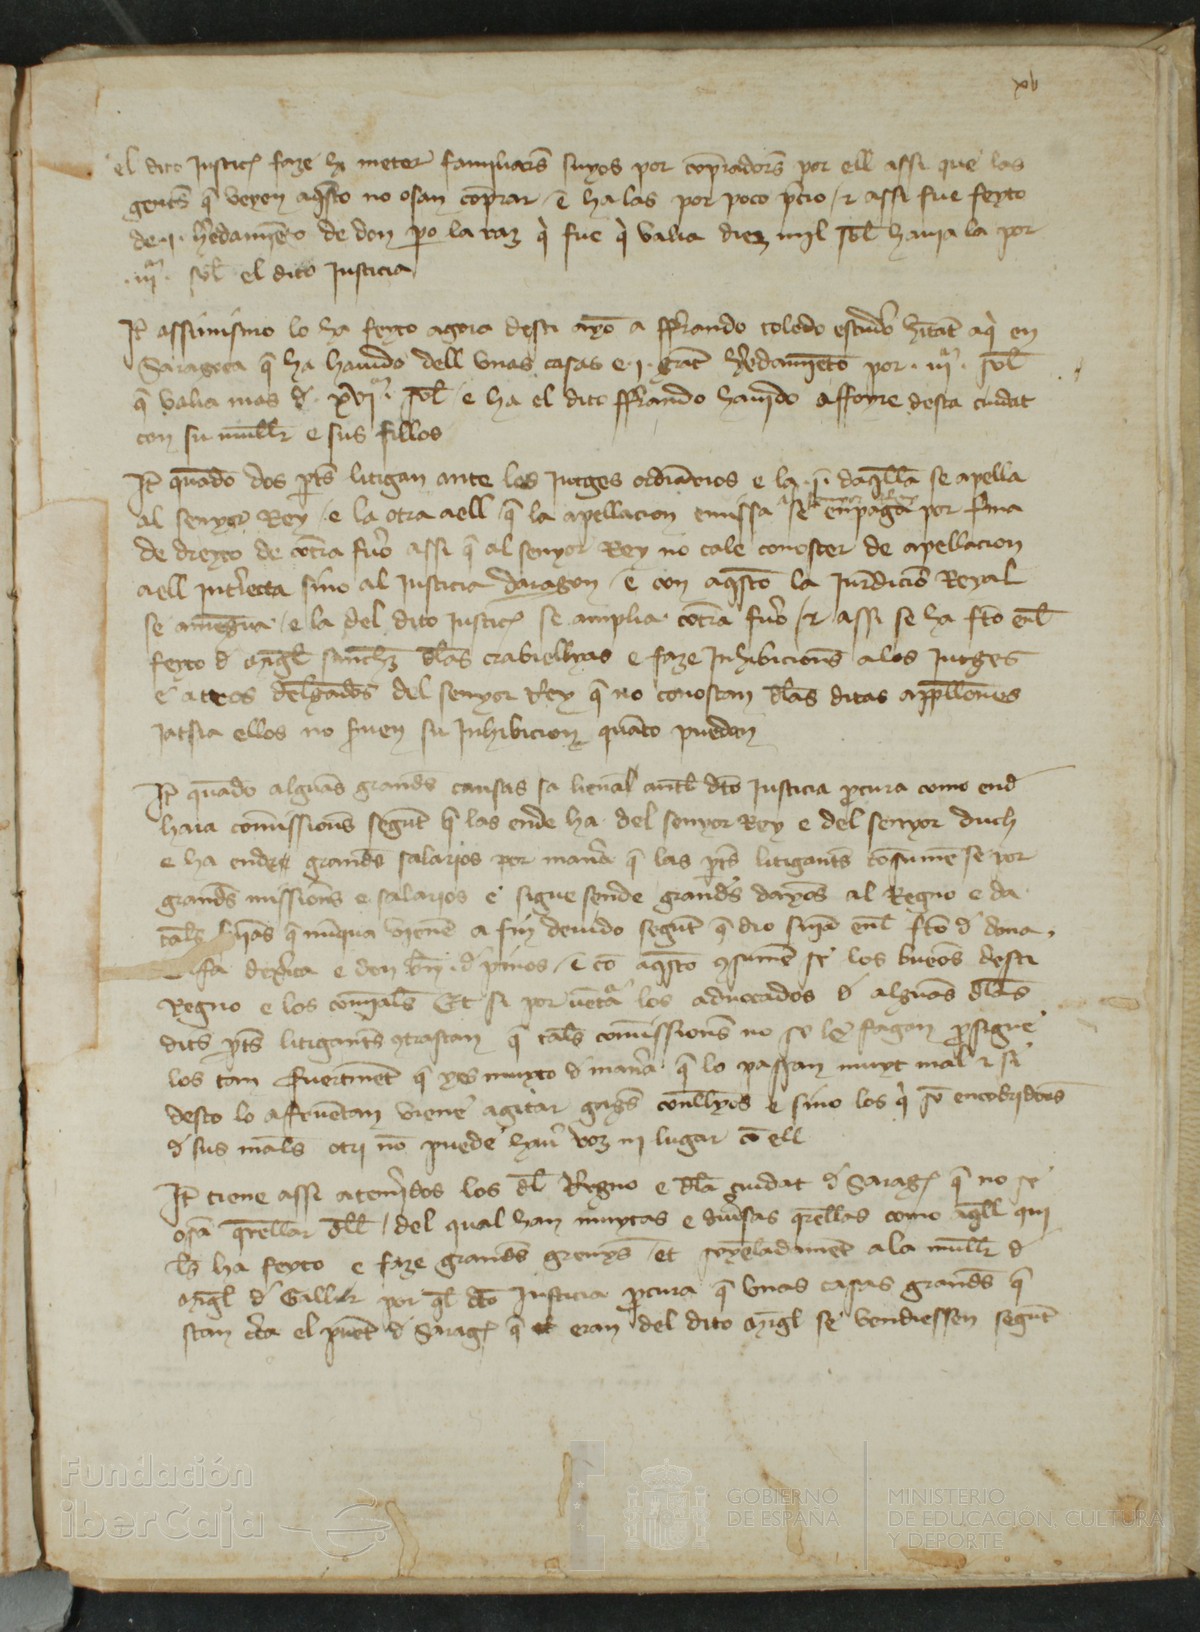 xv
el dito Justic faze hy meter familiars suyos por compradors por ell assi que las
gents q veyen aqsto no osan comprar e ha las por poco precio / et assi fue feyto
de .I. heredamiento de don po la raz q fue q valia diez mil sol havia la por
.iiij. sol el dito Justicia
Jt assimismo lo ha feyto agora desti anyo a fferrando toledo escudero habitant aqi en
Saragoca q ha havido dell unas casas e .I. grant heredamiento por .iiij. sol
q valia mas d xvj sol e ha el dito fferrando havido affoyr desta ciudat
con su muller e sus fillos
Jt quando dos parts litigan ante los Jutges ordinarios e la .I. daqlla se apella
al senyor Rey / e la otra a ell / q la apellacion emissa se por fma
de dreyto de contra fuero assi q al senyor Rey no cale conoscer de apellacion
a ell interiecta sino al Justicia daragon / e con aqsto la Jurdicion Reyal
se amengua / e la del dito Justic se amplia contra fuero / et assi se ha fto enl
feyto d migl sanchz dlas crabiellyas e faze Inhibicions a los Jutges
e atros delgados del senyor Rey q no conoscan dlas ditas appellones
Jatsia ellos no sirven su Inhibicion quanto pueden
Jt quando algunas grands causas sa lievan antel dto Justicia procura como end
haia comissions segunt q las ende ha del senyor Rey e del senyor duch
e ha ende grands salarios por manera q las parts litigants consumen se por
grands missions e salarios e sigue sende grands danyos al Regno e da
tals q nunqua vienen a fin devido segunt q dio enl fto d dona
dexerica e don d pinos / e con aqsto consumen se los buenos desti
Regno e los comunals Et si por ventura los advocados d algunas dlas
dits parts litigants contrastan q tals comissions no se le fagan prosigue
los tan fuertment q yes muyto d manera q lo passan muyt mal et si
desto lo affruentan viene agitar gags conellyos e sino los q son encobridors
d sus mals otri non puede haver voz ni lugar con ell
Jt tiene assi atemidos los dl Regno e dla ciudat d Sarag q no se
osan qrellar dell / del qual han muytas e diversas qrellas como aqll qui
les ha feyto e faze grands greuges / et senyaladament a la muller d
migl d Gallur por ql dto Justicia procura q unas casas grands q
stan cerca el puent d Sarag q eran del dito migl se vendiessen segunt
Fundación
iberCaja
GOBIERNO
DE ESPAÑA
MINISTERIO
DE EDUCACIÓN, CULTURA
Y DEPORTE